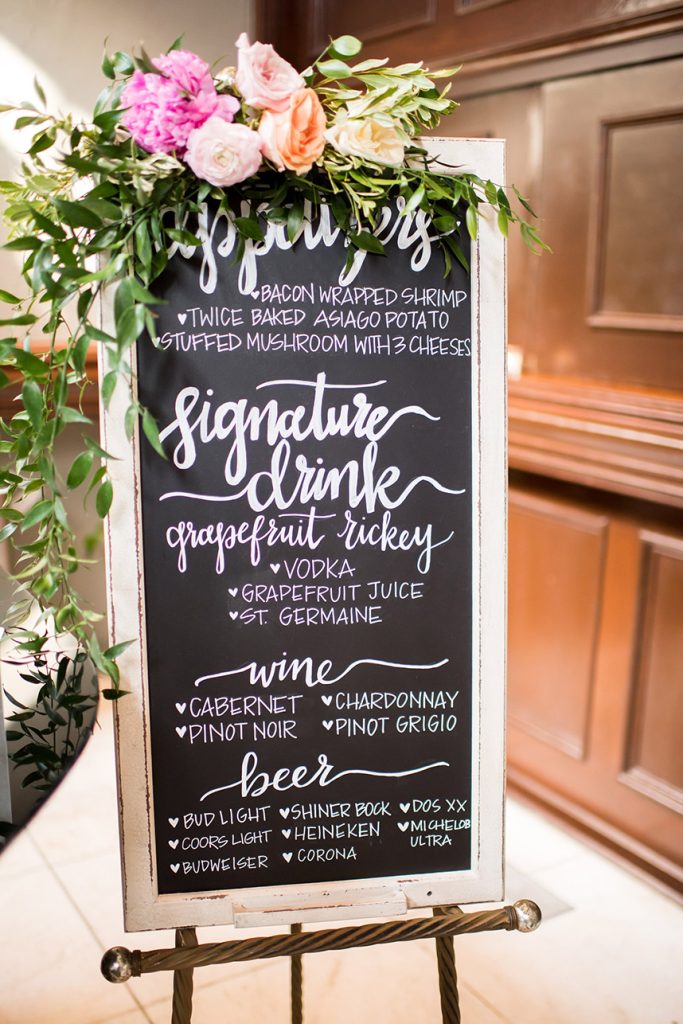 appetizers
♥BACON WRAPPED SHRIMP
♥TWICE BAKED ASIAGO POTATO
♥STUFFED MUSHROOM WITH 3 CHEESES
signature
drink
grapefruit rickey
♥VODKA
♥GRAPEFRUIT JUICE
♥ST. GERMAINE
wine
♥CABERNET ♥CHARDONNAY
♥PINOT NOIR ♥PINOT GRIGIO
beer
♥BUD LIGHT ♥SHINER BOCK ♥DOS XX
♥COORS LIGHT ♥HEINEKEN ♥MICHELOB
ULTRA
♥BUDWEISER ♥CORONA